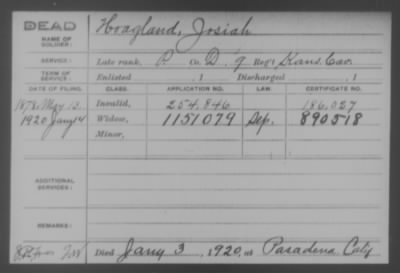 DEAD
NAME OF SOLDIER:
Hoagland, Josiah
SERVICE:
Late rank, P Co. D, 9 Reg't Kans. Cav.
TERM OF SERVICE:
Enlisted , 1 Discharged , 1
DATE OF FILING. CLASS. APPLICATION NO. LAW. CERTIFICATE NO.
1878, May 13. Invalid, 254.846 186.027
1920 Jany 14 Widow, 1151079 Sep. 890518
Minor,
ADDITIONAL SERVICES:
REMARKS:
Died Jany 3, 1920, at Pasadena Calif